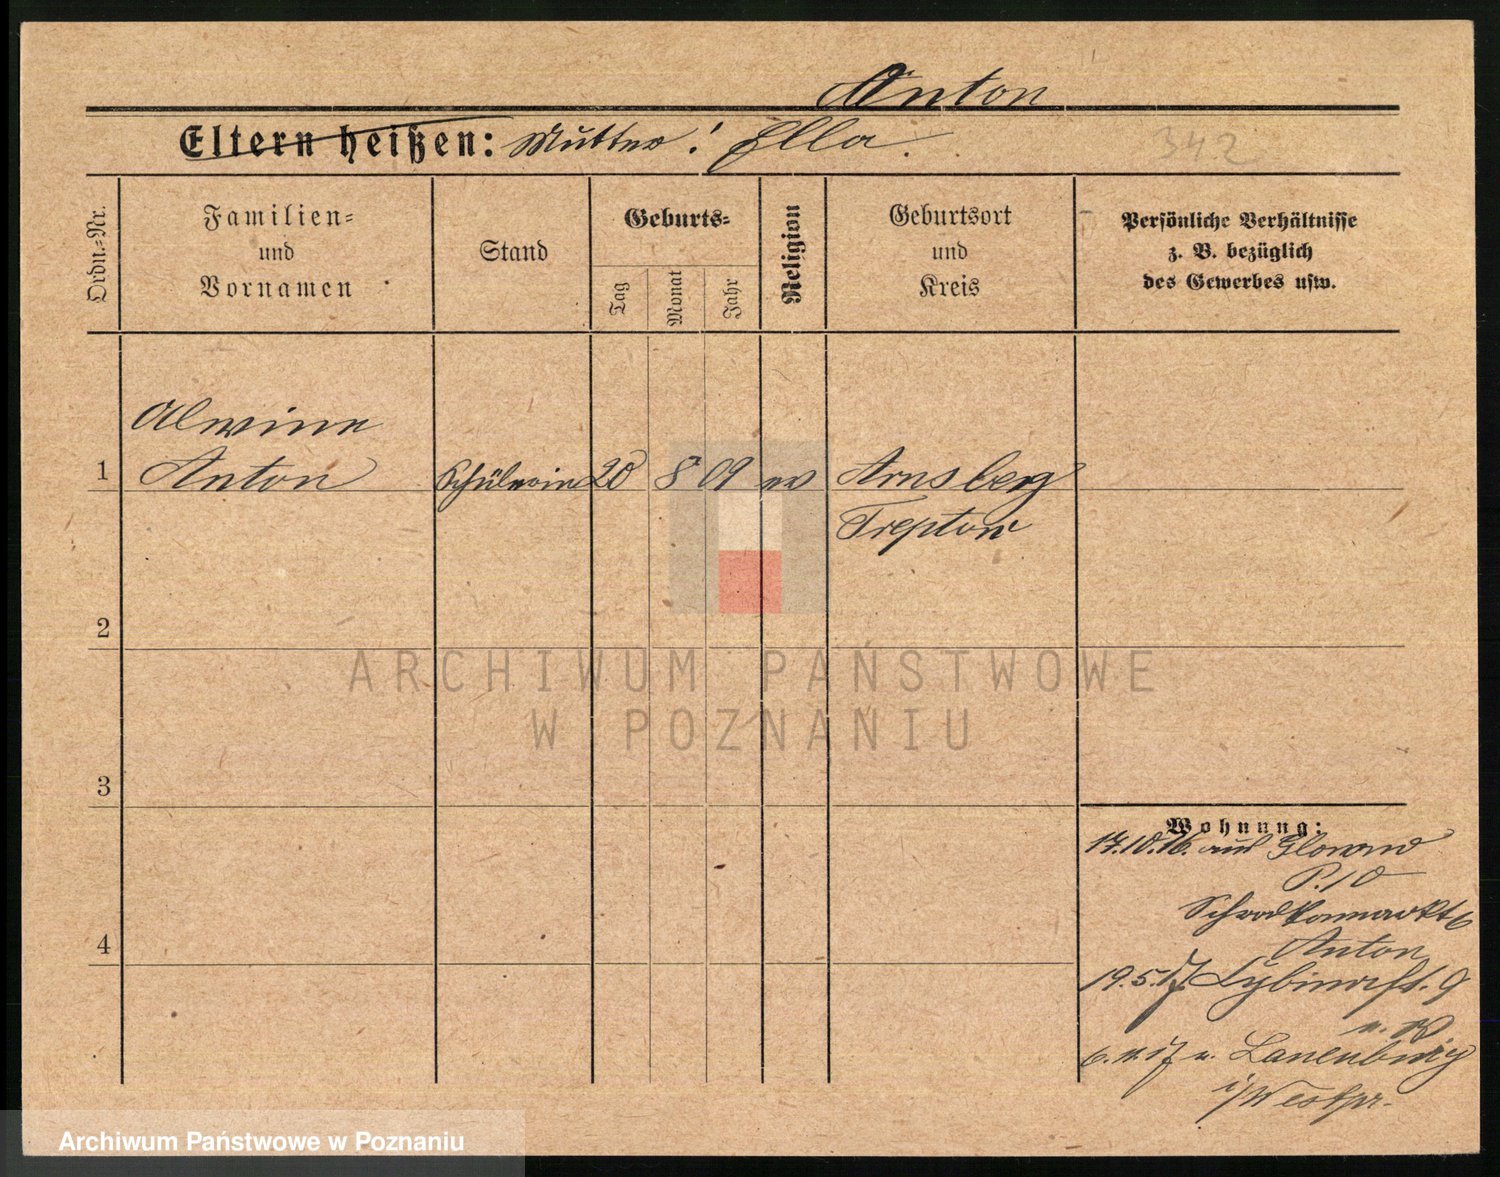 Anton
Eltern heißen: Mutter: Ella.
342
Ordn.=Nr.
Familien=
und
Vornamen
Stand
Geburts=
Tag
Monat
Jahr
Religion
Geburtsort
und
Kreis
Persönliche Verhältnisse
z. B. bezüglich
des Gewerbes usw.
Alwine
1 Anton Schülerin 20 8 09 ev Arnsberg
Treptow
2
3
4
Wohnung:
17.10.16. aus
P. 10
Schrodkamarkt 6
Anton
19.5.17. Cybinast. 9
6. 11. 17 n.
i/Westpr.
ARCHIWUM PAŃSTWOWE
W POZNANIU
Archiwum Państwowe w Poznaniu